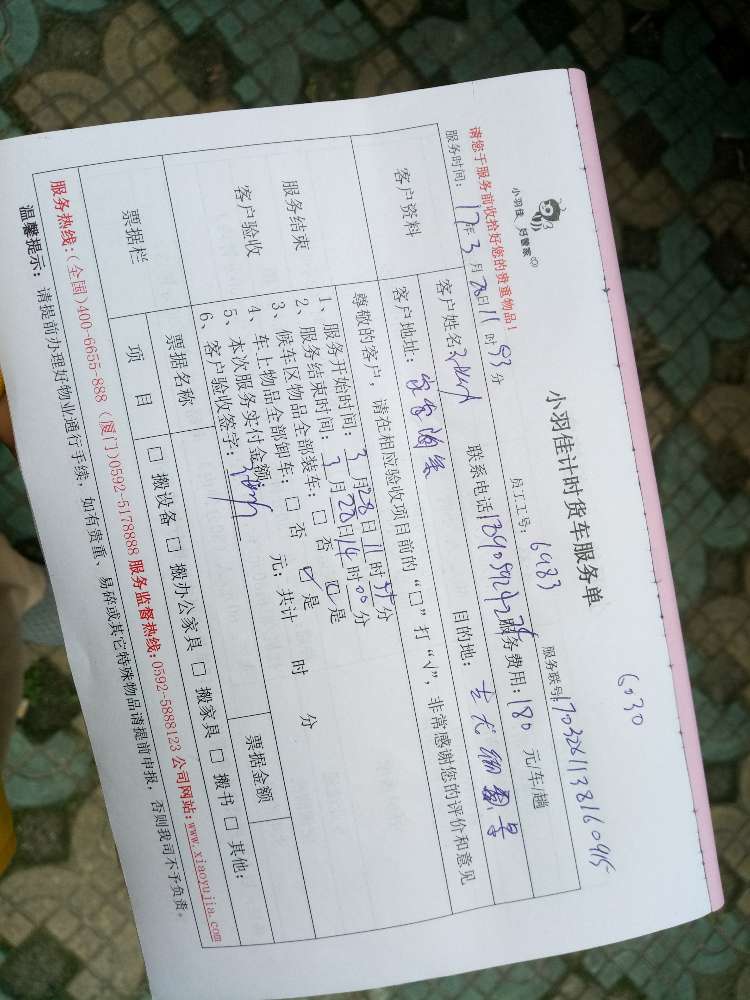 6030
小羽佳 好管家
小羽佳计时货车服务单
请您于服务前收拾好您的贵重物品!
员工工号: 6483 服务账号:
服务时间: 17年3月28日11时 分
客户资料 客户姓名: 联系电话: 服务费用:180 元/车/趟
客户地址: 目的地:
尊敬的客户,请在相应验收项目前的“□”打“√”,非常感谢您的评价和意见
服务结束
客户验收
1、服务开始时间:3月28日11时 分
2、服务结束时间:3月28日14时00分
3、候车区物品全部装车:□否 ☑是
4、车上物品全部卸车:□否 ☑是
5、本次服务实付金额: 元;共计 时 分
6、客户验收签字:
票据栏 票据名称 票据金额
项目 □搬设备 □搬办公家具 □搬家具 □搬书 □其他:
服务热线:(全国)400-6655-888 (厦门)0592-5178888 服务监督热线:0592-5888123 公司网站:www.xiaoyujia.com
温馨提示:请提前办理好物业通行手续,如有贵重、易碎或其它特殊物品请提前申报,否则我司不予负责。